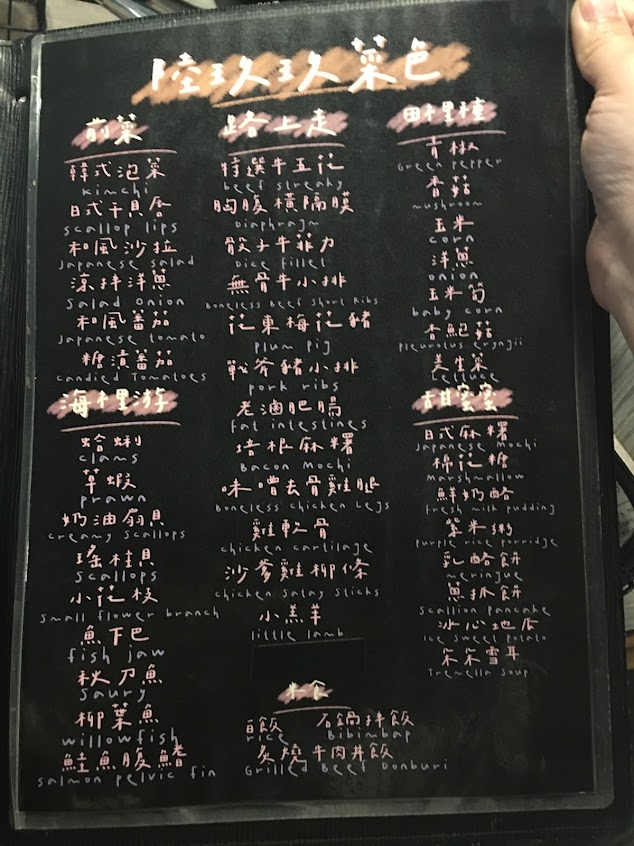 陸玖玖菜色
前菜
韓式泡菜
kimchi
日式干貝唇
scallop lips
和風沙拉
Japanese salad
涼拌洋蔥
Salad onion
和風蕃茄
Japanese tomato
糖漬蕃茄
candied Tomatoes
海裡游
蛤蜊
clams
草蝦
prawn
奶油扇貝
creamy scallops
瑤柱貝
scallops
小花枝
small flower branch
魚下巴
fish jaw
秋刀魚
saury
柳葉魚
willowfish
鮭魚腹鰭
salmon pelvic fin
路上走
特選牛五花
beef streaky
胸腹橫隔膜
Diaphragm
骰子牛菲力
Dice fillet
無骨牛小排
Boneless Beef Short Ribs
花東梅花豬
plum pig
戰斧豬小排
pork ribs
老滷肥腸
fat intestines
培根麻糬
Bacon Mochi
味噌去骨雞腿
Boneless chicken Legs
雞軟骨
chicken cartilage
沙爹雞柳條
chicken Satay Sticks
小羔羊
little lamb
米食
白飯 石鍋拌飯
rice Bibimbap
炙燒牛肉丼飯
Grilled Beef Donburi
田裡種
青椒
Green pepper
香菇
mushroom
玉米
corn
洋蔥
onion
玉米筍
baby corn
杏鮑菇
pleurotus eryngii
美生菜
Lettuce
甜蜜蜜
日式麻糬
Japanese Mochi
棉花糖
Marshmallow
鮮奶酪
Fresh milk pudding
紫米粥
purple rice porridge
乳酪餅
meringue
蔥抓餅
Scallion pancake
冰心地瓜
Ice sweet potato
朵朵雪耳
Tremella soup